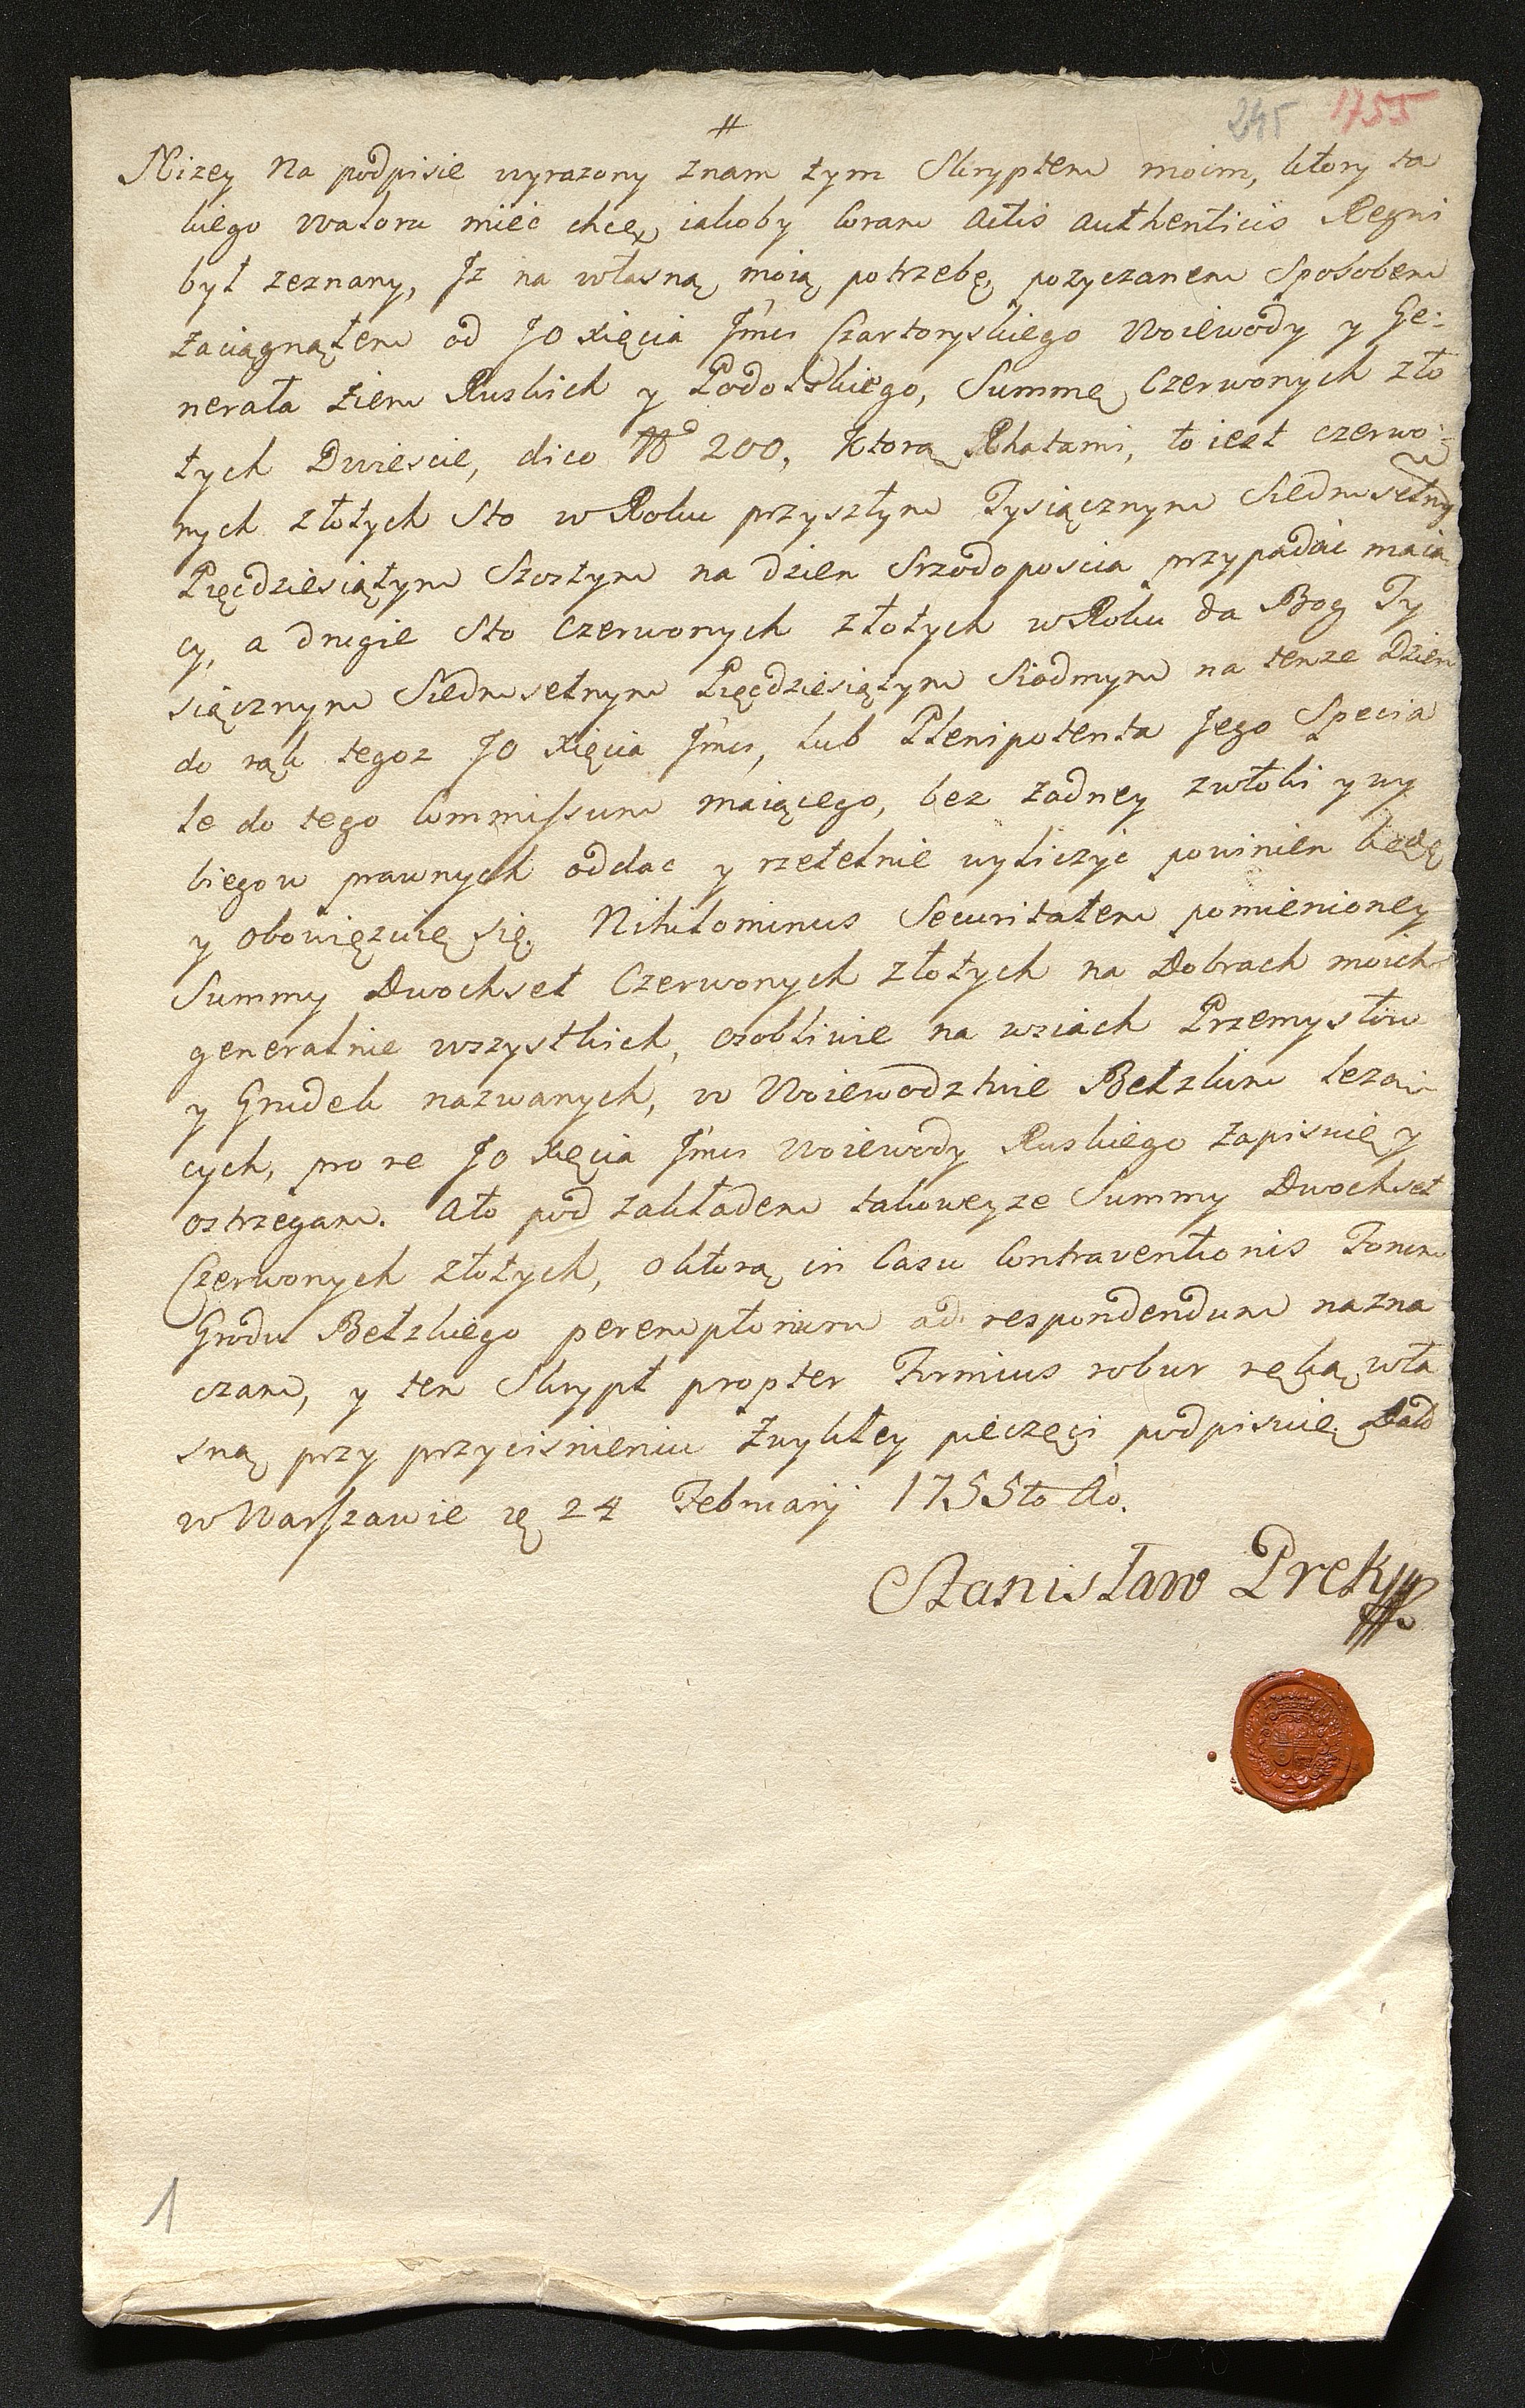 245 1755
#
Nizey na podpisie wyrazony znam tym Skryptem moim, ktory ta
kiego waloru mieć chcę, iakoby Coram Actis authenticis Regni
był zeznany, Jz na własną moią potrzebę, pozyczanem Sposobem
zaciągnąłem od JO Xięcia Jmci Czartoryskiego Woiewody y Ge:
nerała Ziem Ruskich y Podolskiego, Summę Czerwonych zło
tych Dwiescie, dico No 200, Ktora Rhatami, to iest czerwo
nych złotych Sto w Roku przyszłym Tysiącznym Siedmsetny
Pięcdziesiątym Szostym na dzien Srzodoposcia przypadaic maią
cy, a drugie Sto Czerwonych złotych w Roku da Bog Ty
siącznym Siedmsetnym Pięcdziesiątym Siodmym na tenze dzien
do rąk tegoz JO Xięcia Jmci, lub Plenipotenta Jego Specia
le do tego Commissum maiącego, bez zadney zwłoki y wy
biegow prawnych oddac y rzetelnie wyliczyc powinien będę
y obowięzuię się. Nihilominus Securitatem pomienioney
Summy Dwochset Czerwonych złotych na Dobrach moich
generalnie wszystkich, osobliwie na wsiach Przemysłow
y Grudek nazwanych, w Woiewodztwie Bełzkim lezaią
cych, pro re JO Xięcia Jmci Woiewody Ruskiego zapisuię y
ostrzegam. Ato pod zakładem takoweyze Summy Dwochset
Czerwonych złotych, o ktorą in Casu Contraventionis Forum
Grodu Bełzkiego peremptorium ad respondendum nazna
czam, y ten Skrypt propter Firmius robur ręką wła
sną przy przycisnieniu zwykłey pieczęci podpisuię. Datt
w Warszawie ię 24 Februarij 1755to Ao.
Stanisław Prek
1